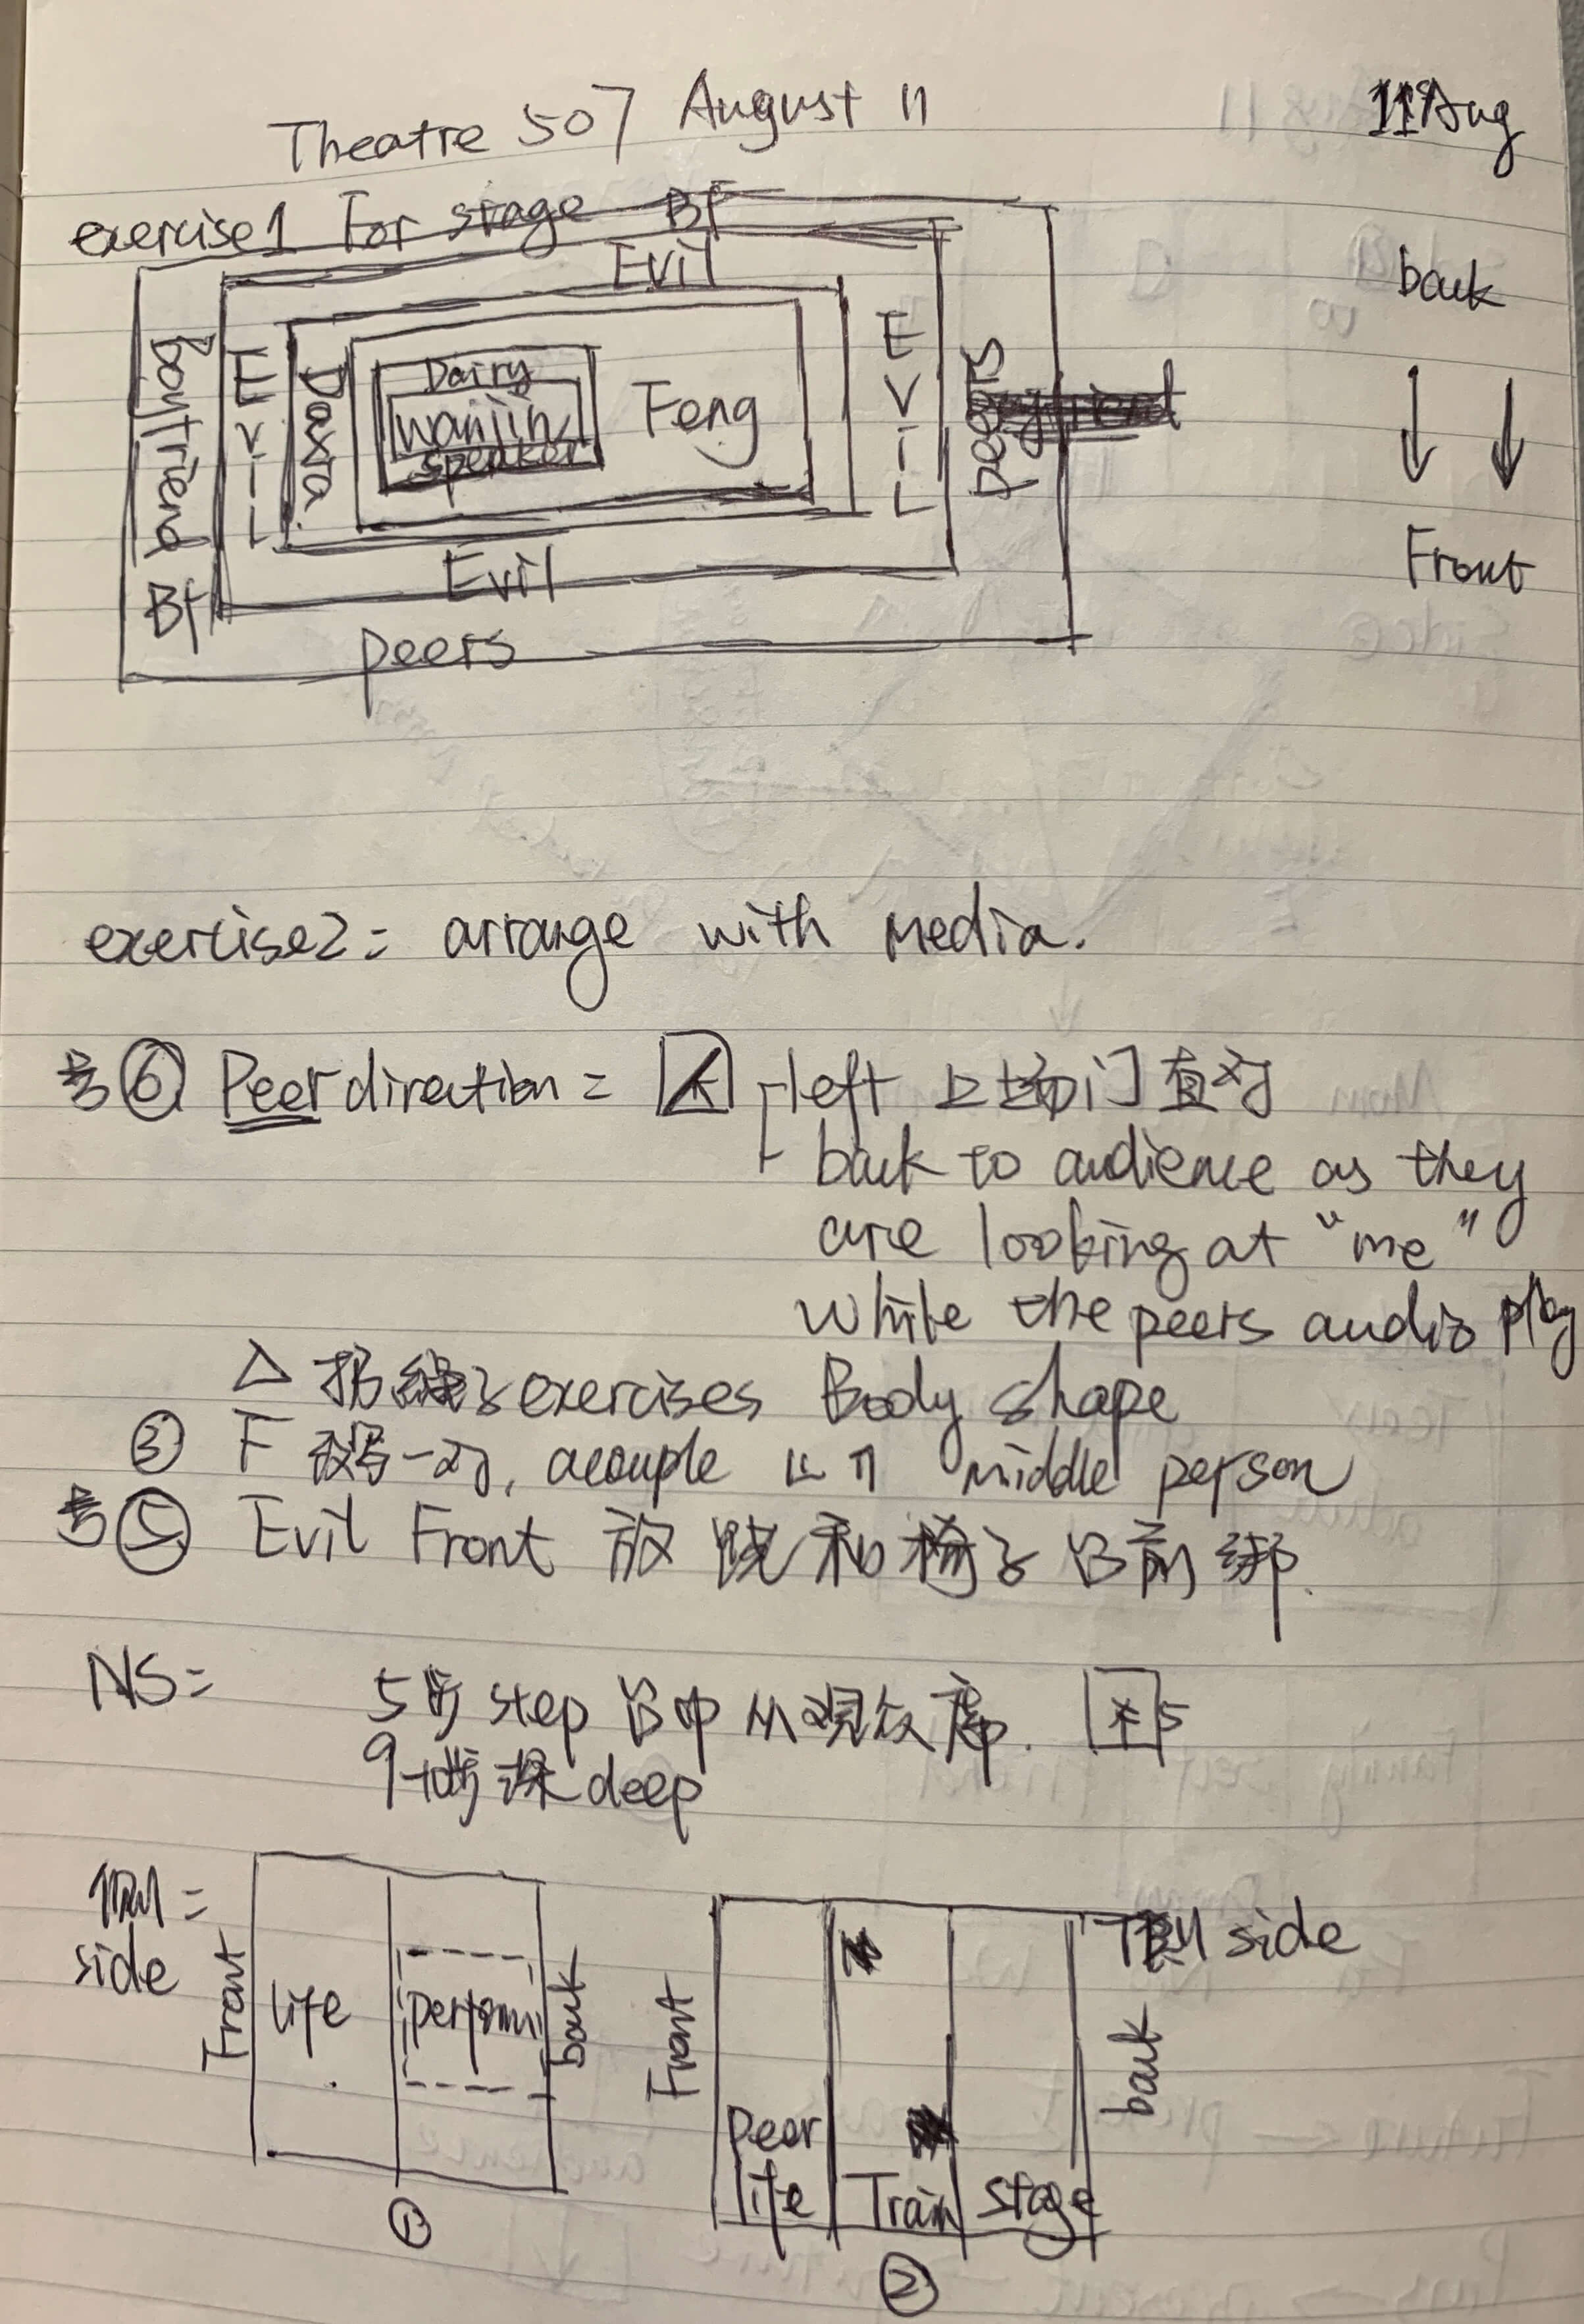 Theatre 507 August 11
11 Aug
exercise1 For stage Bf
Evil
back
Front
boyfriend
Evil
Daxra
Dairy
wanjin
speaker
Feng
EViL
peers
Bf
Evil
peers
exercise2: arrange with media.
⑥ Peer direction = left 上场门直对
back to audience as they
are looking at "me"
while the peers audio play
△ 拐线 exercises Body shape
③ F 一对, acouple middle person
⑤ Evil Front 放 凳和椅子 前 绑.
NS= 5步 step 从观众席. 5
9步深 deep
side
Front
life
perform
back
①
Front
peer
life
Train
stage
side
back
②